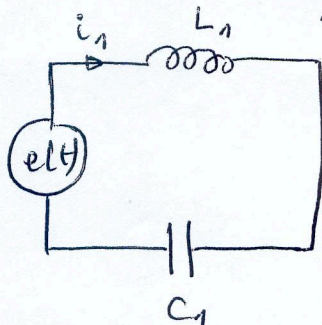 i₁ L₁
e(t)
C₁